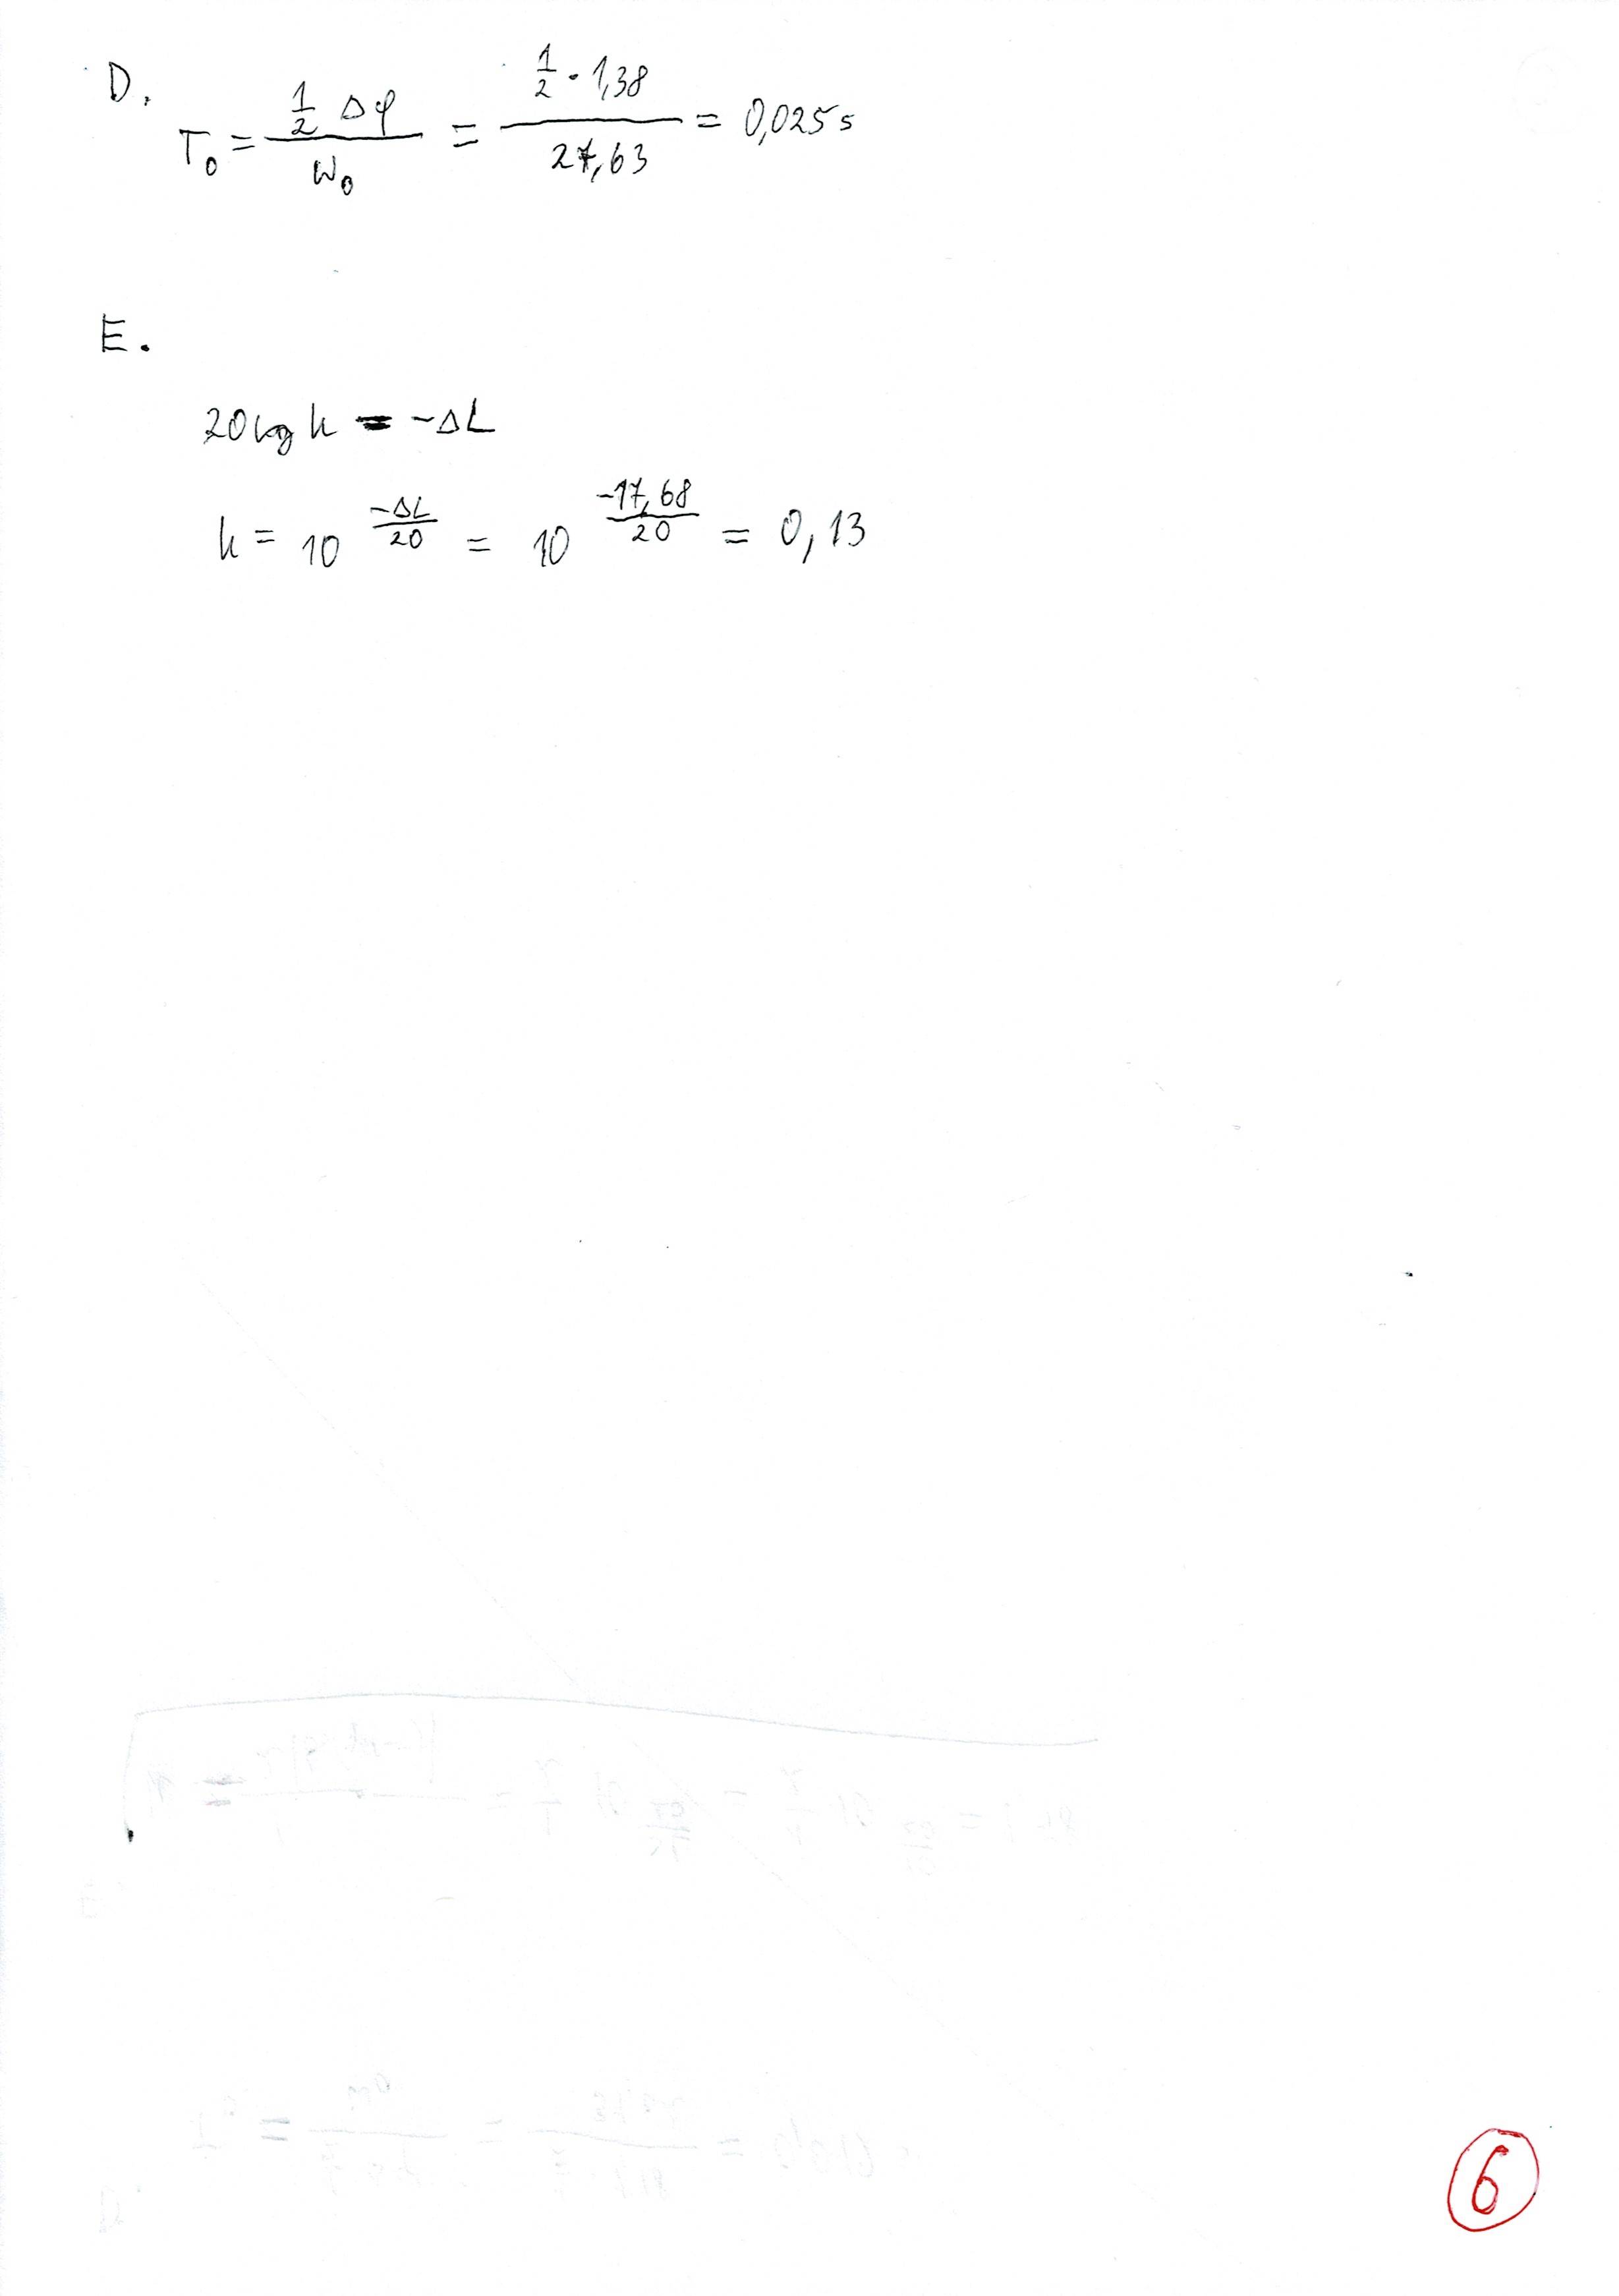 D.
T₀ = (½ Δφ)/ω₀ = (½ · 1,38)/27,63 = 0,025 s
E.
20 log k = -ΔL
k = 10^(-ΔL/20) = 10^(-17,68/20) = 0,13
6